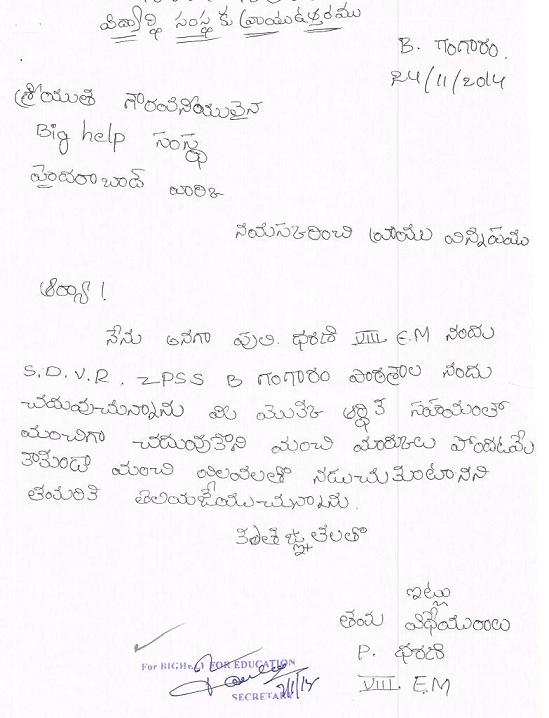 విద్యార్థి సంస్థకు వ్రాయు ఉత్తరము
B. గంగారం.
24/11/2014
శ్రీయుత గౌరవనీయులైన
Big help సంస్థ
హైదరాబాద్ వారికి
నమస్కరించి వ్రాయు విన్నపము
ఆర్యా!
నేను అనగా పులి. ధరణి VIII E.M నందు
S.D.V.R. ZPSS B గంగారం పాఠశాల నందు
చదువుచున్నాను మీ యొక్క ఆర్థిక సహాయంతో
మంచిగా చదువుకొని మంచి మార్కులు పొందటమే
కాకుండా మంచి విలువలతో నడుచుకుంటానని
తమరికి తెలియజేయుచున్నాను.
కృతజ్ఞతలతో
ఇట్లు
తమ విధేయురాలు
P. ధరణి
VIII. E.M
FOR EDUCATION
SECRETARY